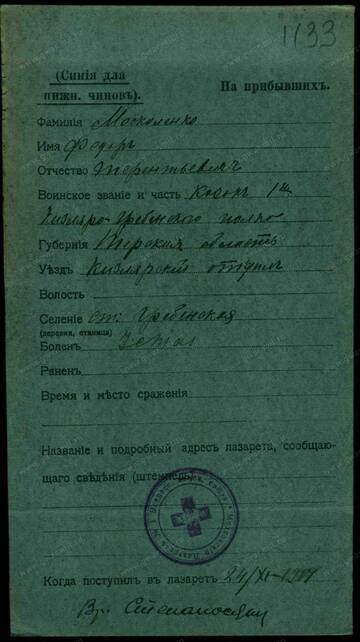 1133
(Синія для
нижн. чиновъ).
На прибывшихъ.
Фамилія Москаленко
Имя Федоръ
Отчество Терентьевичъ
Воинское званіе и часть Казакъ 1го
Кизляро-Гребенского полка
Губернія Терская область
Уѣздъ Кизлярскій отдѣлъ
Волость
Селеніе ст. Гребенская
(деревня, станица)
Боленъ
Раненъ
Время и мѣсто сраженія
Названіе и подробный адресъ лазарета, сообщаю-
щаго свѣдѣнія (штемпель)
Когда поступилъ въ лазаретъ 24/XI-1914
Вр.